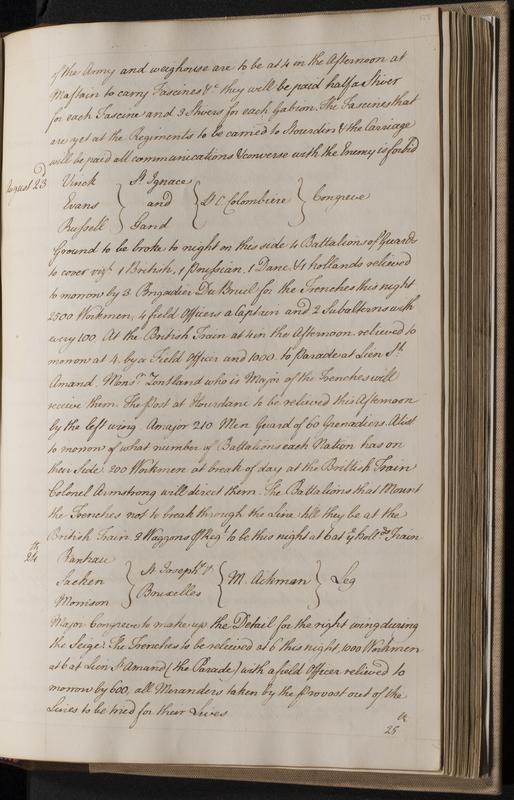 of the Army and weighouse are to be at 4 in the Afternoon at
Mastain to carry Fascines &c they will be paid half a Stiver
for each Fascine and 3 Stivers for each Gabion. The Fascines that
are yet at the Regiments to be carried to Hourdin & the Carriage
will be paid all communications & converse with the Enemy is forbid
August 23d Vinck } St Ignace { St C. Colombiere } Congreve
Evans } and
Russell } Gand
Ground to be broke to night on this side 4 Battalions of Guards
to cover vizt 1 British, 1 Prussian, 1 Dane, & 1 hollands relieved
to morrow by 3 Brigadier Du Breul for the Trenches this night
2500 Workmen, 4 field Officers a Captain and 2 Subalterns with
every 100, At the British Train at 4 in the Afternoon relieved to
morrow at 4 by a Field Officer and 1000 to parade at Lien St
Amand, Monsr Zoutland who is Major of the Trenches will
receive them. The post at Hourdain to be relieved this Afternoon
by the left wing. A major 210 Men Guard of 60 Grenadiers. A list
to morrow of what number of Battalions each Nation has on
their Side 200 Workmen at break of day at the Brittish Train
Colonel Armstrong will direct them. The Battalions that Mount
the Trenches not to break through the Line till they be at the
British Train 3 Waggons p Regt to be this night at 6 at ye Hollds Train
24th Rantzau
Sacken } St Joseph & { M. Ackman } Leg
Morrison } Bruxelles
Major Congreve to make up the Detail for the right wing during
the Seige. The Trenches to be relieved at 6 this night, 1000 Workmen
at 6 at Lien St Amand (the Parade) with a field Officer relieved to
morrow by 600, all Meranders taken by the Provost out of the
Lines to be tried for their Lives
25th